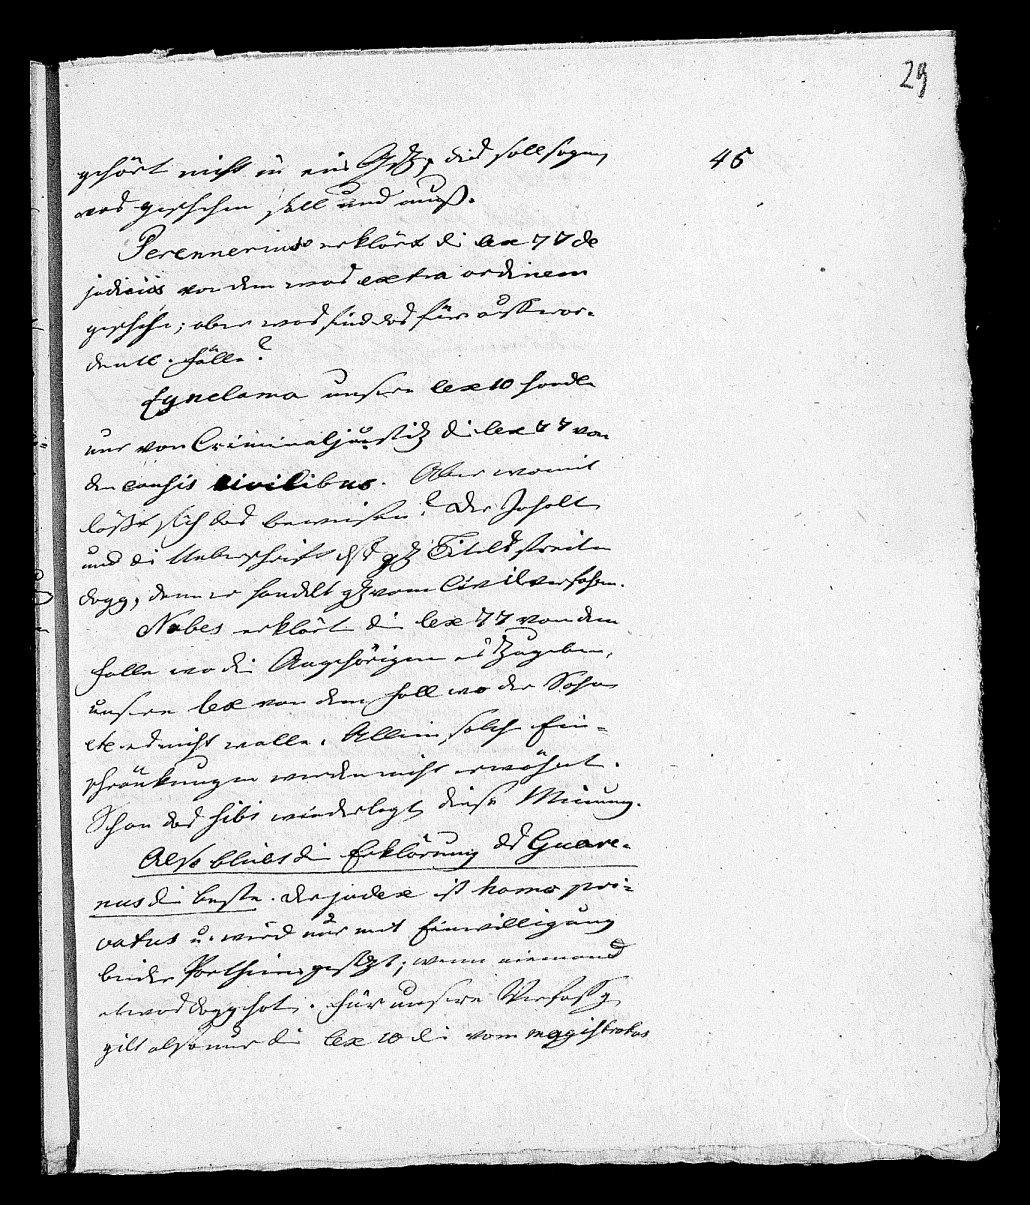 29
46
gehört nicht in ein Gesetz, dies soll sagen
was geschehen soll und muß.
Perennerius erklärt die lex 77 de
judiciis von dem was extra ordinem
geschehe; aber was sind das für ausseror-
dentl. Fälle?
unsere lex 10 handle
nur von Criminaljustiz die lex 77 von
den causis civilibus. Aber womit
läßt sich das beweisen? Der Inhalt
und die Ueberschrift des Titels streiten
dagg, denn er handelt vom Civilverfahren.
Nabes erklärt die lex 77 von dem
Falle wo die Angehörigen es zugeben,
unsere lex von dem Fall wo der Sohn
etc es nicht wolle. Allein solche Ein-
schränkungen werden nicht erwähnt.
Schon das wiederlegt diese Meinung.
Also bleibt die Erklärung des Guare-
nus die beste. Der judex ist homo pri-
vatus u. wird nur mit Einwilligung
beider Partheien gesetzt; wenn niemand
etwas dagg hat. Für unsere Verfassg
gilt also nur die lex 10 die vom magistratus